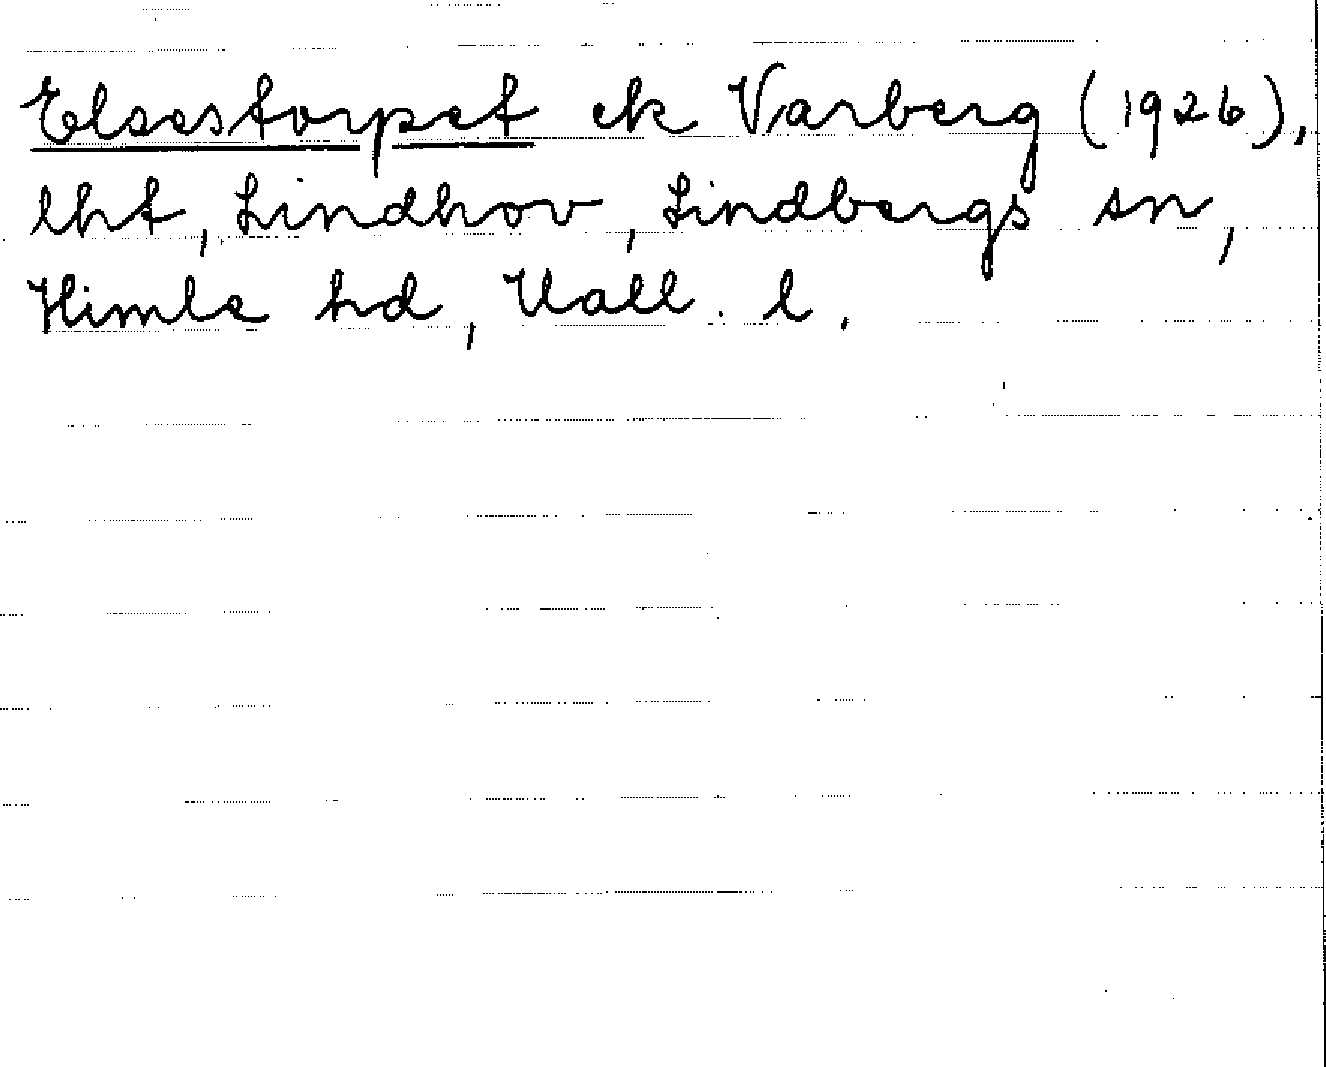 Elsestorpet ek Varberg (1926),
lht, Lindhov, Lindbergs sn,
Himle hd, Hall. l.